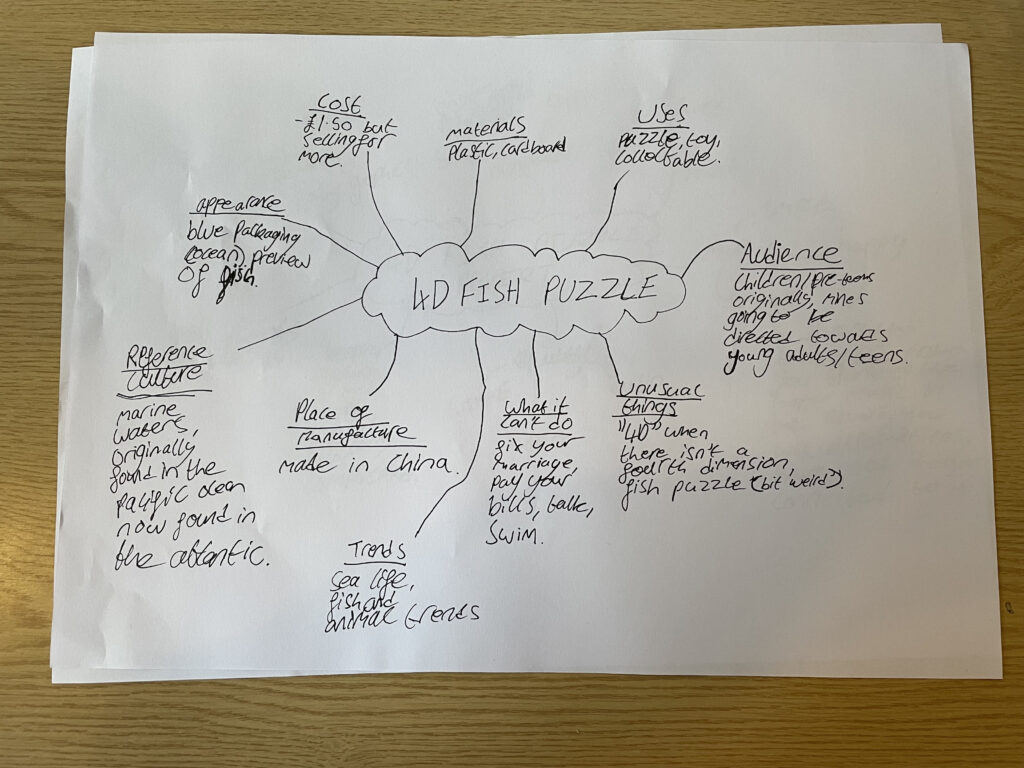 4D FISH PUZZLE
Cost
- £1.50 but
selling for
more.
materials
Plastic, cardboard
Uses
puzzle, toy,
collectable.
Audience
Children/pre-teens
originally, mines
going to be
directed towards
young adults/teens.
Unusual
things
"4D" when
there isn't a
fourth dimension,
fish puzzle (bit weird).
What it
can't do
fix your
marriage,
pay your
bills, talk,
swim.
Trends
sea life,
fish and
animal trends
Place of
Manufacture
made in China.
Reference
Culture
marine
waters,
originally
found in the
pacific ocean
now found in
the atlantic.
appearance
blue packaging
(ocean), preview
of fish.